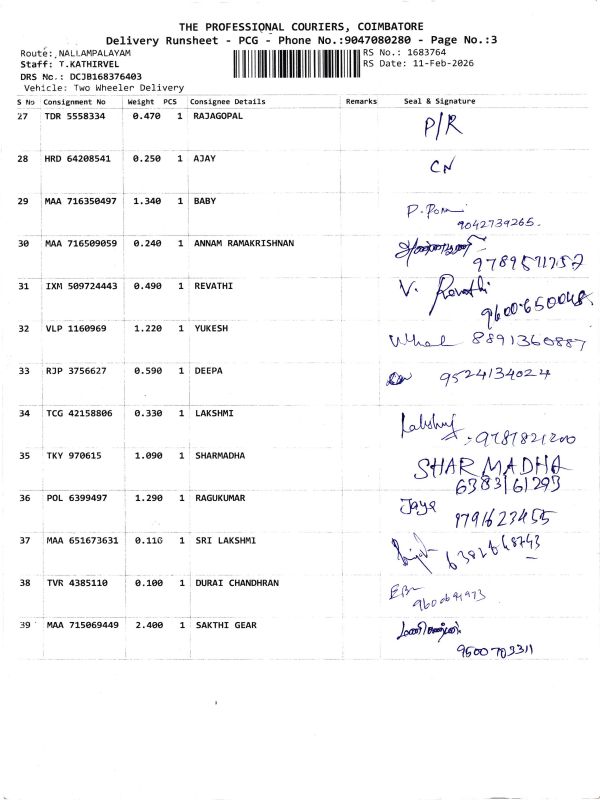 THE PROFESSIONAL COURIERS, COIMBATORE
Delivery Runsheet - PCG - Phone No.:9047080280 - Page No.:3
Route: NALLAMPALAYAM
RS No.: 1683764
Staff: T.KATHIRVEL
RS Date: 11-Feb-2026
DRS No.: DCJB168376403
Vehicle: Two Wheeler Delivery
S No Consignment No Weight PCS Consignee Details Remarks Seal & Signature
27 TDR 5558334 0.470 1 RAJAGOPAL P/R
28 HRD 64208541 0.250 1 AJAY CN
29 MAA 716350497 1.340 1 BABY P.
9042739265.
30 MAA 716509059 0.240 1 ANNAM RAMAKRISHNAN
31 IXM 509724443 0.490 1 REVATHI V. Revathi
32 VLP 1160969 1.220 1 YUKESH 8891360887
33 RJP 3756627 0.590 1 DEEPA 9524134024
34 TCG 42158806 0.330 1 LAKSHMI
35 TKY 970615 1.090 1 SHARMADHA SHARMADHA
6383161293
36 POL 6399497 1.290 1 RAGUKUMAR Jaya
9791623455
37 MAA 651673631 0.110 1 SRI LAKSHMI
38 TVR 4385110 0.100 1 DURAI CHANDHRAN
39 MAA 715069449 2.400 1 SAKTHI GEAR